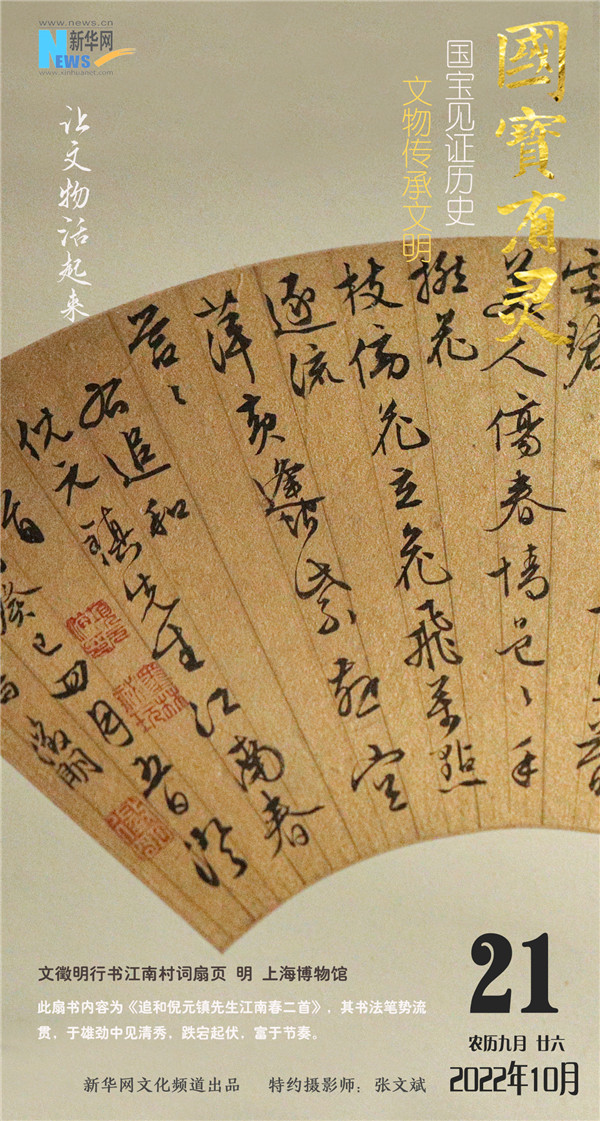 www.news.cn
新华网
NEWS
www.xinhuanet.com
國寶有灵
国宝见证历史
文物传承文明
让文物活起来
美人傷春情邑〻手
撚花
枝傍花立花飛萬點
逐流
萍黄蜂紫燕空
營〻
右追和
倪元鎮先生江南春
首癸巳四月五日
徵明
文徵明行书江南村词扇页 明 上海博物馆
此扇书内容为《追和倪元镇先生江南春二首》，其书法笔势流
贯，于雄劲中见清秀，跌宕起伏，富于节奏。
21
农历九月 廿六
2022年10月
新华网文化频道出品 特约摄影师：张文斌